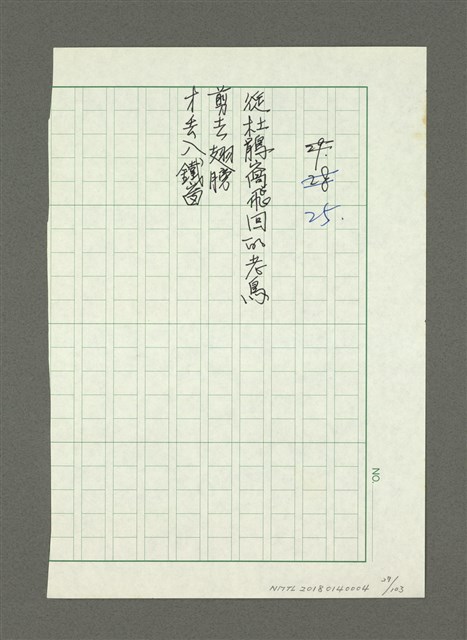 29.
28.
25.
從杜鵑窩飛回的老鳥
剪去翅膀
才丢入鐵窗
NO.
NMTL 20180140004
29/103